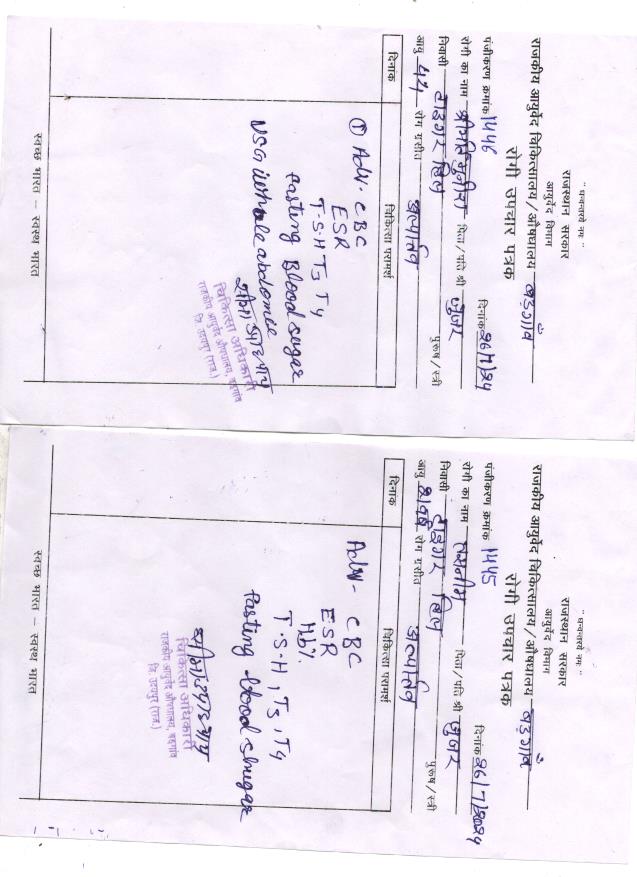 " धन्वन्तरये नमः "
राजस्थान सरकार
आयुर्वेद विभाग
राजकीय आयुर्वेद चिकित्सालय/औषधालय बड़गाँव
रोगी उपचार पत्रक
पंजीकरण क्रमांक 1446 दिनांक 26/7/24
रोगी का नाम श्रीमति पिता/पति श्री
निवासी टाइगर हिल पुरूष/स्त्री
आयु 44 रोग ग्रसीत अल्पार्तव
दिनांक चिकित्सा परामर्श
① Adv. CBC
ESR
T.S.H T3 T4
Fasting Blood sugar
USG whole abdomen
चिकित्सा अधिकारी
राजकीय आयुर्वेद औषधालय, बड़गांव
जि. उदयपुर (राज.)
स्वच्छ भारत – स्वस्थ भारत
" धन्वन्तरये नमः "
राजस्थान सरकार
आयुर्वेद विभाग
राजकीय आयुर्वेद चिकित्सालय/औषधालय बड़गाँव
रोगी उपचार पत्रक
पंजीकरण क्रमांक 1445 दिनांक 26/7/2024
रोगी का नाम पिता/पति श्री
निवासी टाइगर हिल पुरूष/स्त्री
आयु रोग ग्रसीत
दिनांक चिकित्सा परामर्श
Adv- CBC
ESR
Hb%
T.S.H, T3, T4
Fasting blood shugar
चिकित्सा अधिकारी
राजकीय आयुर्वेद औषधालय, बड़गांव
जि. उदयपुर (राज.)
स्वच्छ भारत – स्वस्थ भारत